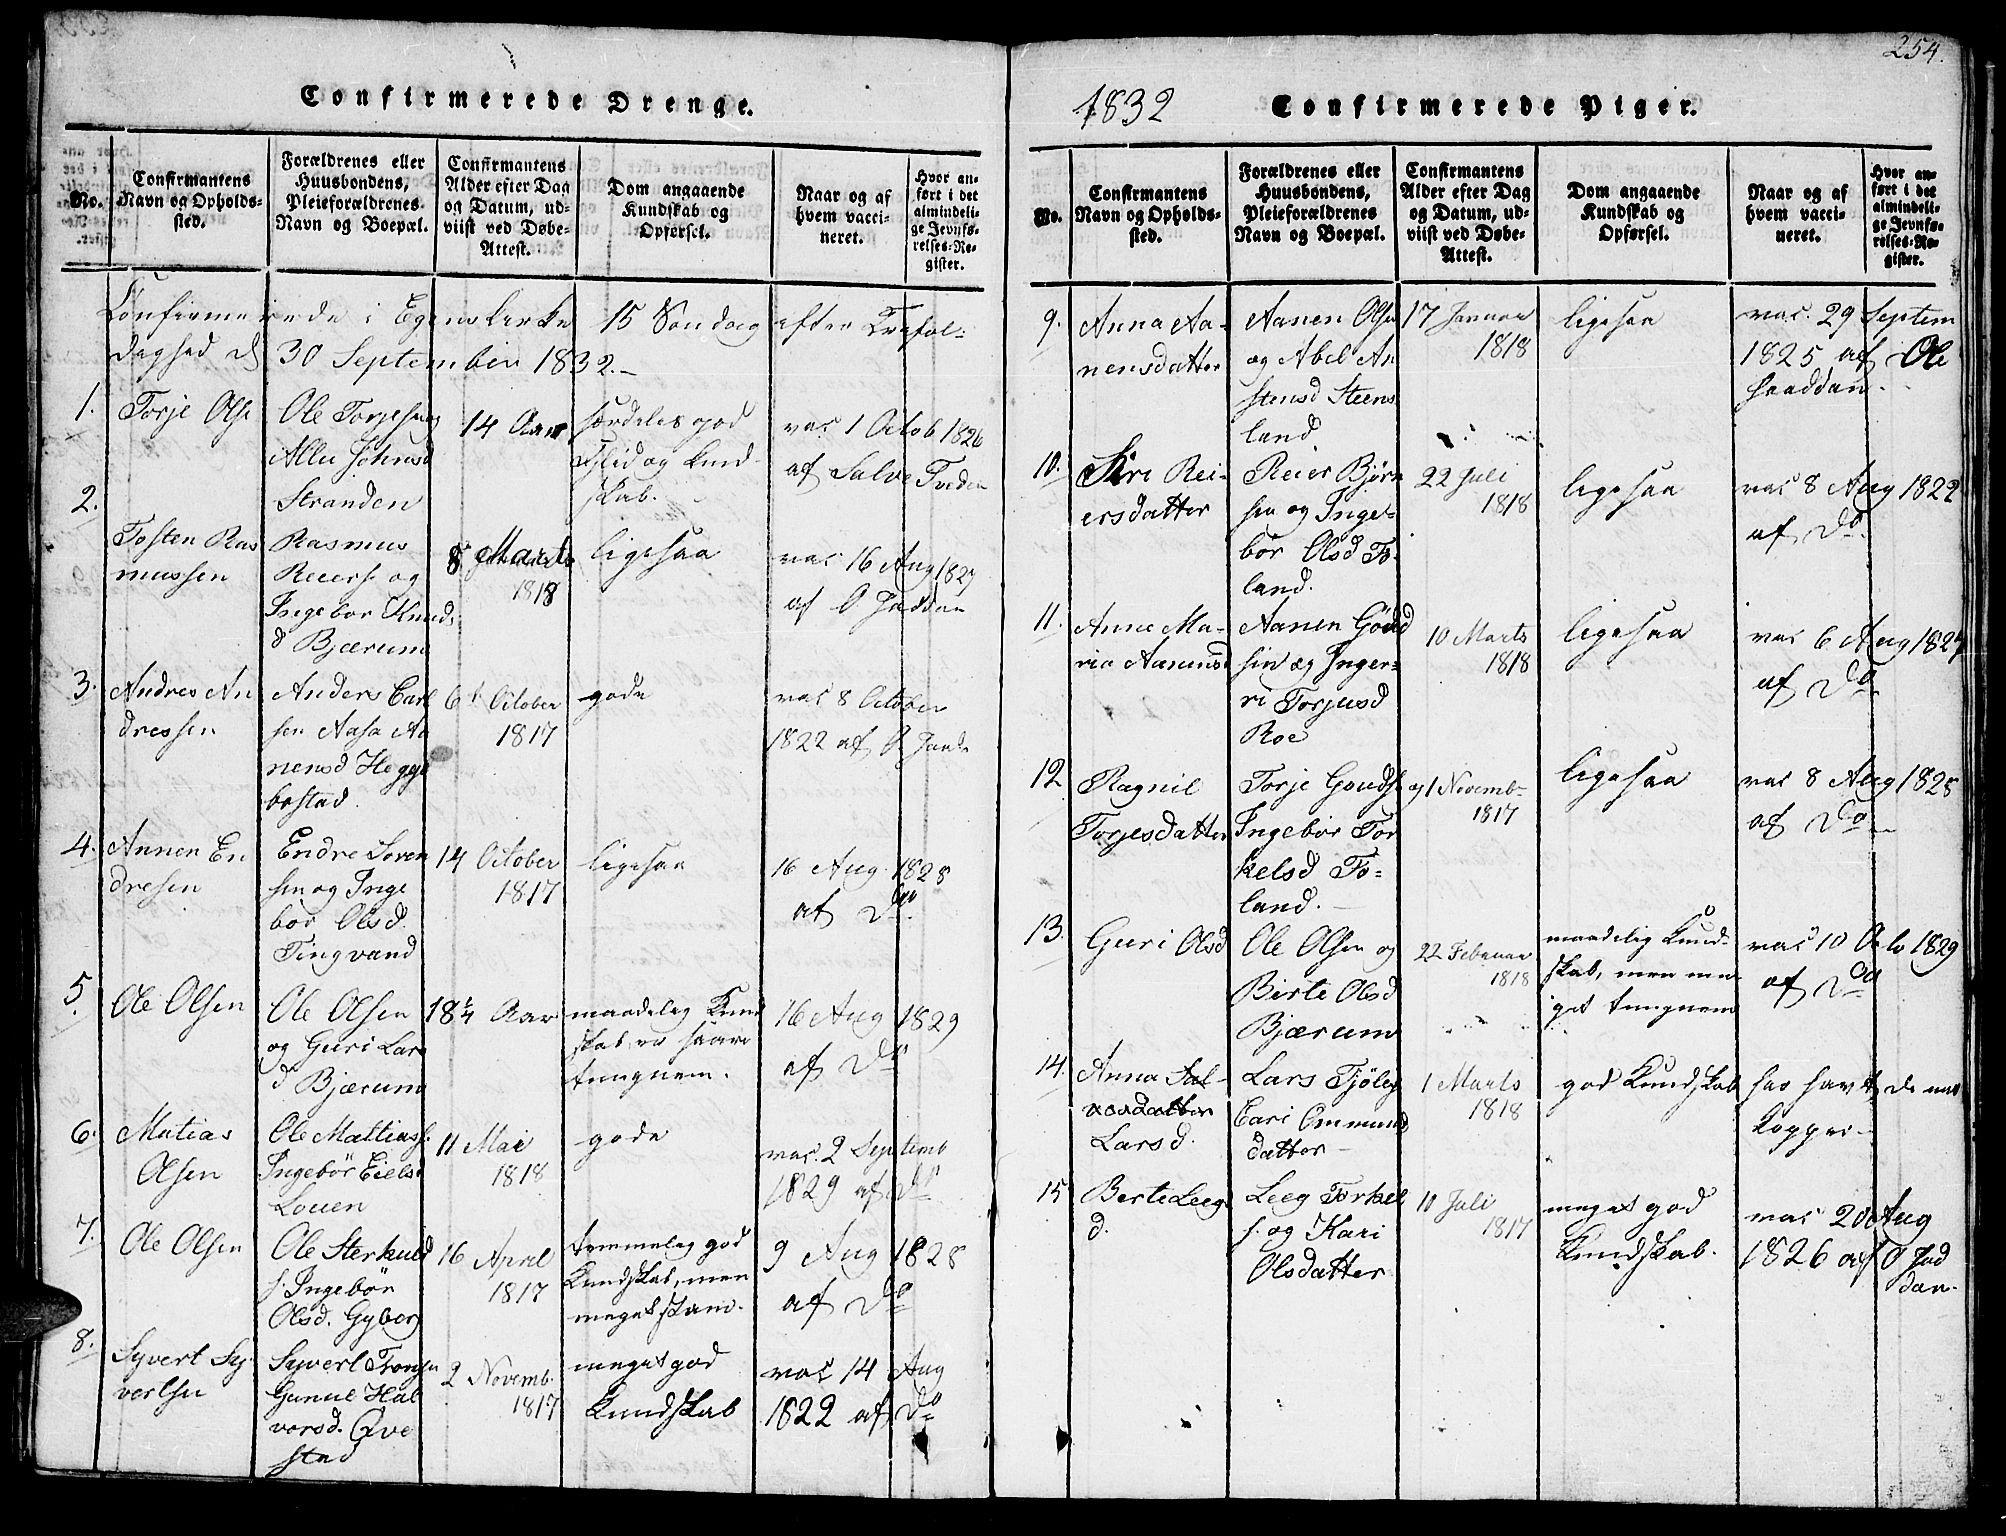 254.
Confirmerede Drenge.
No.
Confirmantens
Navn og Opholds-
sted.
Forældrenes eller
Huusbondens,
Pleieforældrenes
Navn og Boepæl.
Confirmantens
Alder efter Dag
og Datum, ud-
viist ved Døbe-
Attest.
Dom angaaende
Kundskab og
Opførsel.
Naar og af
hvem vacci-
neret.
Hvor an-
ført i det
almindeli-
ge Jevnfø-
relses-Re-
gister.
Confirmerede i Egens Kirke 15 Søndag efter Trefol-
dighed d 30 September 1832.
1.
Torje Olse
Ole Torjesen og
Allu Johnsd
Stranden
14 Aar
særdeles god
Flid og Kund-
skab.
vac 1 Octob 1826
af Salve Tveden
2.
Tosten Ras
mussen
Rasmus
Reiers og
Ingebor Knud
d Bjærum
8 Marts
1818
ligesaa
vac 16 Aug 1827
af O Haddan
3.
Andres An
dressen
Anders Carl
sen Aasa Aa
nensd Hegge
bostad.
6t October
1817
gode
vac 8 October
1822 af O
4.
Annen En
dresen
Endre Soren
sen og Inge
bor Olsd.
Tingvand
14 October
1817
ligesaa
16 Aug 1828
af Do
5.
Ole Olsen
Ole Olsen
og Guri Lars
d Bjærum
18¼ Aar
maadelig Kund
skab, er saare
tungnem.
16 Aug 1829
af Do
6.
Matias
Olsen
Ole Mattias s.
Ingebør Eielsd
Louen
11 Mai
1818
gode
vac. 2 Septemb
1829 af Do
7.
Ole Olsen
Ole Sterkuld
s. Ingebør
Olsd. Gyberg
16 April
1817
temmelig god
Kundskab, men
meget stam.
9 Aug 1828
af Do
8.
Syvert Sy-
vertsen
Syvert Tronsen
Gunnil Hal
vorsd. Qve
stad
2 Novemb.
1817
meget god
Kundskab
vac 14 Aug
1822 af Do
1832 Confirmerede Piger.
No.
Confirmantens
Navn og Opholds-
sted.
Forældrenes eller
Huusbondens,
Pleieforældrenes
Navn og Boepæl.
Confirmantens
Alder efter Dag
og Datum, ud-
viist ved Døbe-
Attest.
Dom angaaende
Kundskab og
Opførsel.
Naar og af
hvem vacci-
neret.
Hvor an-
ført i det
almindeli-
ge Jevnfø-
relses-Re-
gister.
9.
Anna Aa-
nensdatter
Aanen Olsen
og Abel An
stensd Steens
land
17 Januar
1818
ligesaa
vac. 29 Septem
1825 af Ole
Haaddan.
10.
Siri Rei-
ersdatter
Reier Bjørn
sen og Inge-
bør Olsd To-
land.
22 Juli
1818
ligesaa
vac 8 Aug 1822
af Do
11.
Anne Ma-
ria Aanensd
Aanen Goud
sen og Inger-
ri Torjusd
Roe
10 Marts
1818
ligesaa
vac 6 Aug 1827
af Do
12
Ragnil
Torjesdatter
Torje Goudse og
Ingebør Tor
kelsd To-
land.
1 Novemb-
1817
ligesaa
vac 8 Aug 1828
af Do
13.
Guri Olsd
Ole Olsen og
Birte Olsd
Bjærum
22 Februar
1818
maadelig Kund-
skab, men me
get tungnem
vac 10 Octo 1829
af Do
14.
Anna Sal-
vesdatter
Larsd.
Lars Tjölog
Eari Ommund
datter
1 Marts
1818
god Kundskab
har havt de nat
Kopper
15
Berte Leeg
d.
Leeg Torkel
s. og Kari
Olsdatter
10 Juli
1817
meget god
Kundskab.
vac 20 Aug
1826 af O Had
dan.